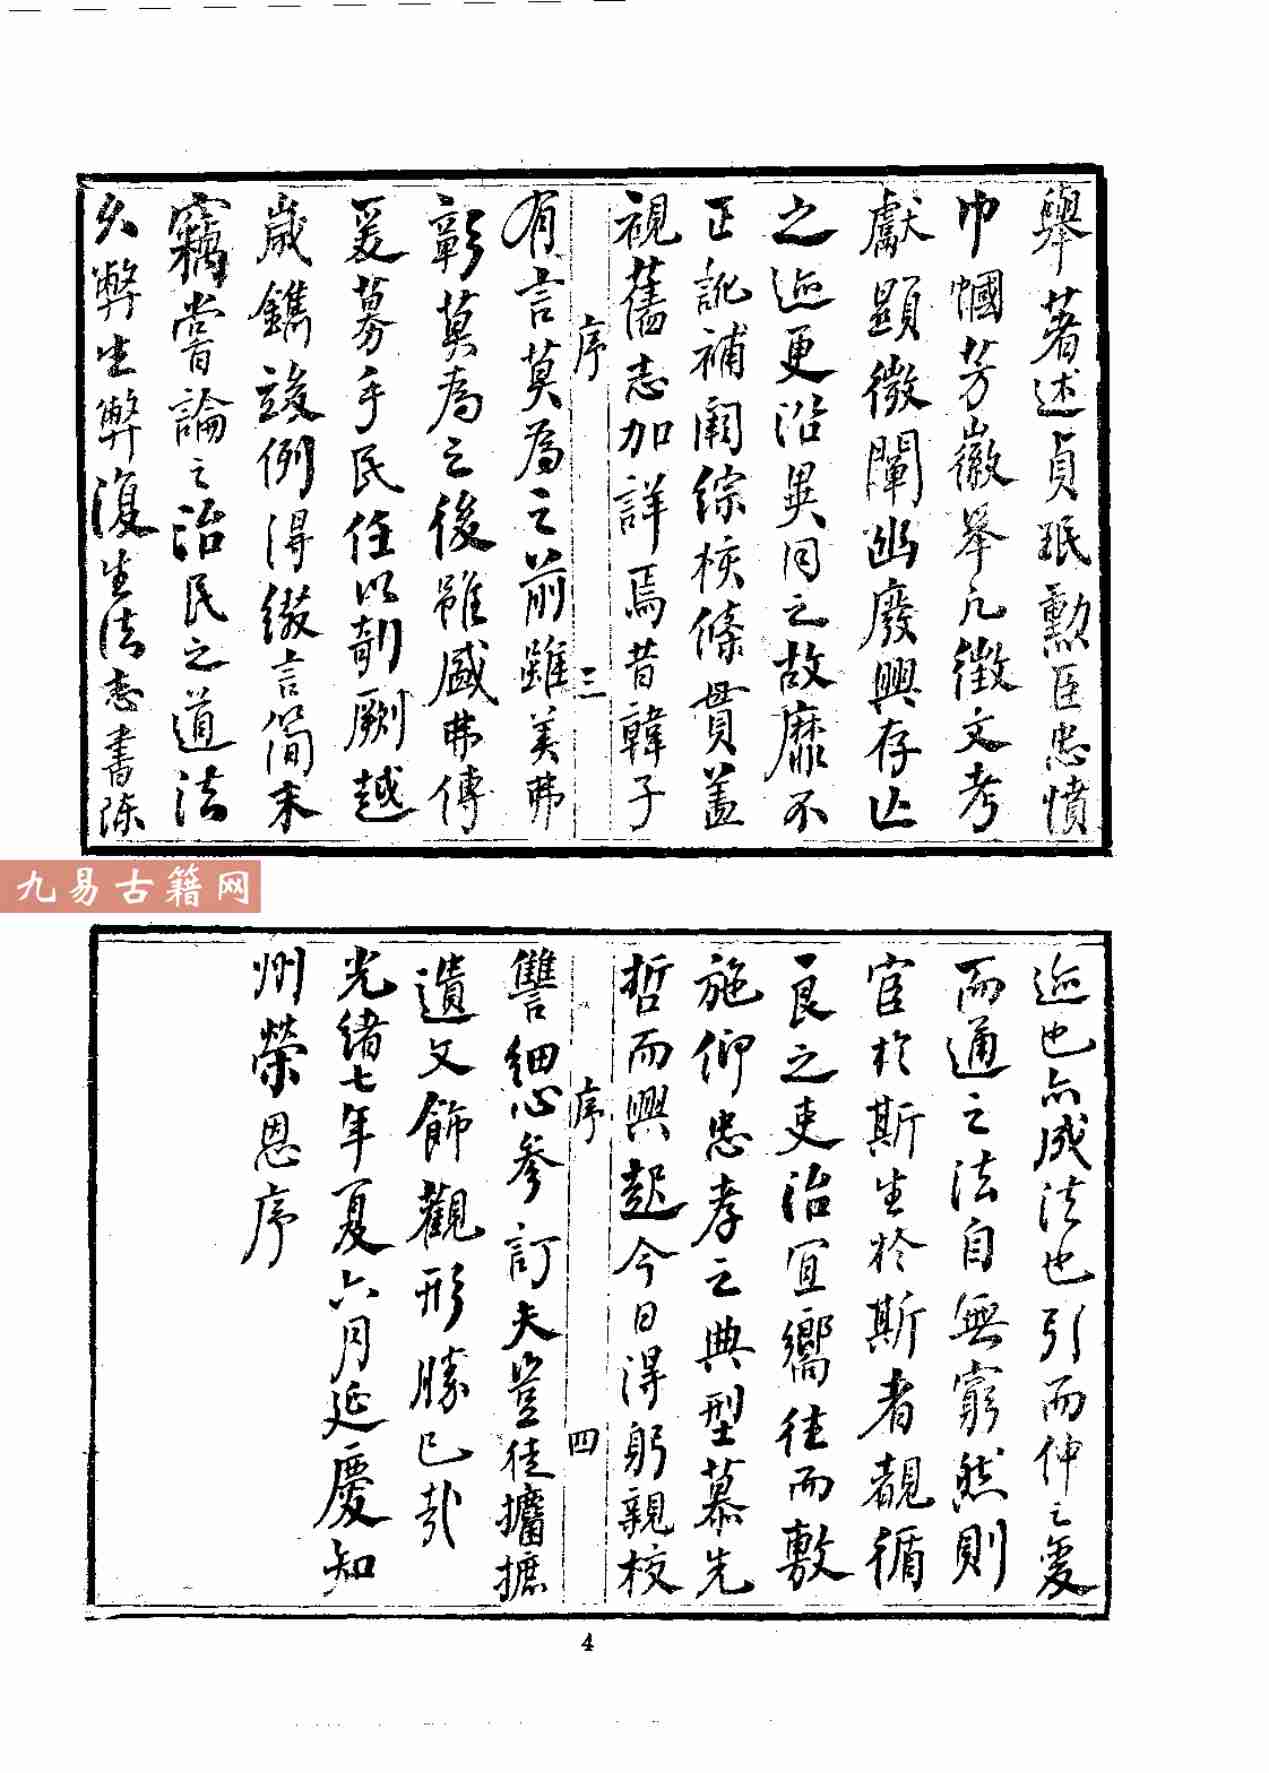 舉著述貞珉勳臣忠憤
巾幗芳徽舉凡徵文考
獻顯微闡幽廢興存亡
之迹更沿異同之故靡不
正訛補闕綜核條貫蓋
視舊志加詳焉昔韓子
序 三
有言莫為之前雖美弗
彰莫為之後雖盛弗傳
爰募手民任以剞劂越
歲鐫竣例得綴言簡末
竊嘗論之治民之道法
久弊生弊復生法志書陳
九易古籍网
迹也亦成法也引而伸之變
而通之法自無窮然則
官於斯生於斯者覩循
良之吏治宜嚮往而敷
施仰忠孝之典型慕先
哲而興起今日得躬親校
序 四
讐細心參訂夫豈徒攟摭
遺文飾觀形勝已哉
光緒七年夏六月延慶知
州榮恩序
4